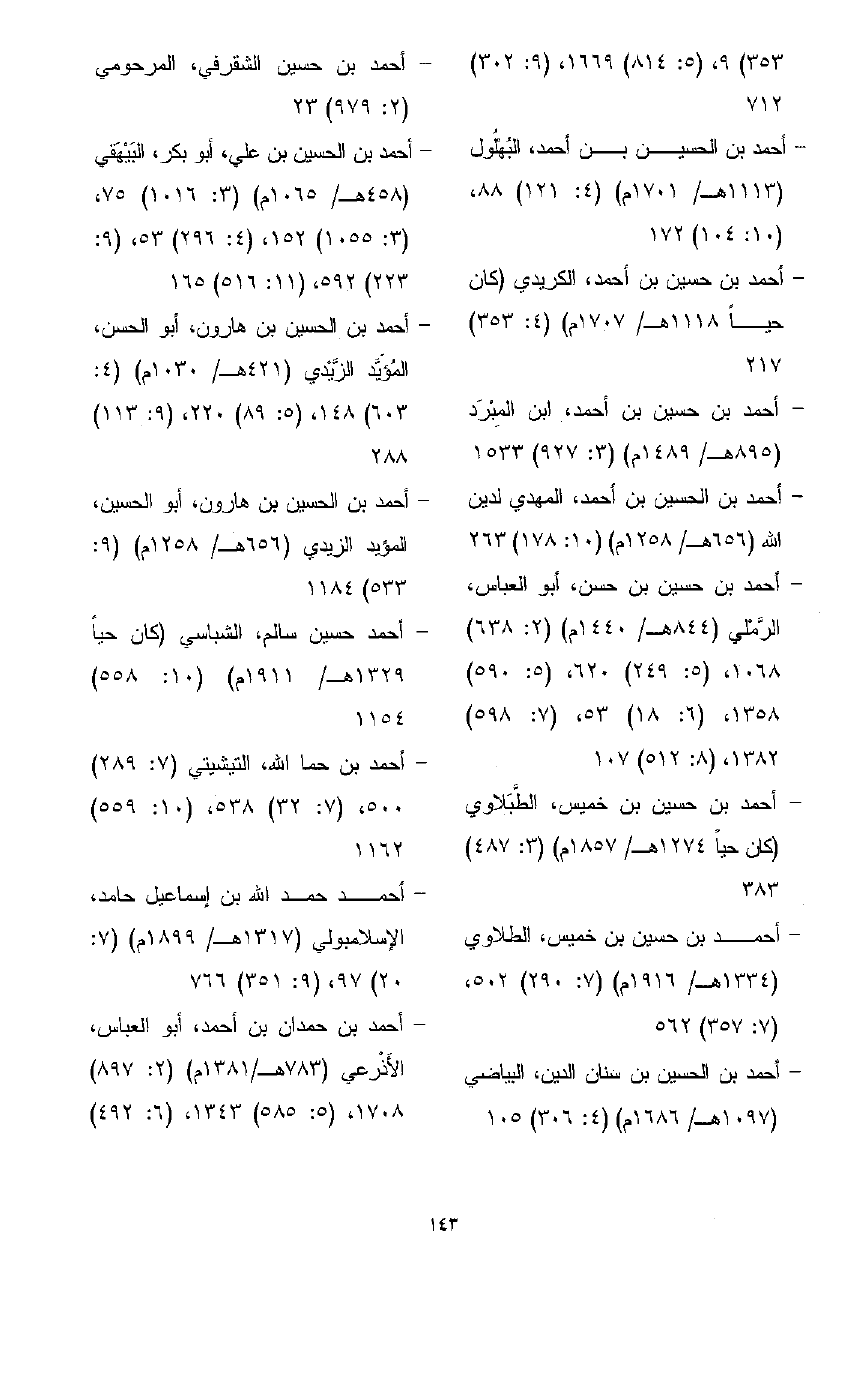 ٣٥٣) ٩، (٥: ٨١٤) ١٦٦٩، (٩: ٣٠٢)
٧١٢
- أحمد بن الحسيـــن بـــن أحمد، البُهْلُول
(١١١٣هـ/ ١٧٠١م) (٤: ١٢١) ٨٨،
(١٠: ١٠٤) ١٧٢
- أحمد بن حسين بن أحمد، الكريدي (كان
حيـــاً ١١١٨هـ/ ١٧٠٧م) (٤: ٣٥٣)
٢١٧
- أحمد بن حسين بن أحمد، ابن المِبْرَد
(٨٩٥هـ/ ١٤٨٩م) (٣: ٩٢٧) ١٥٣٣
- أحمد بن الحسين بن أحمد، المهدي لدين
الله (٦٥٦هـ/ ١٢٥٨م) (١٠: ١٧٨) ٢٦٣
- أحمد بن حسين بن حسن، أبو العباس،
الرَّمْلي (٨٤٤هـ/ ١٤٤٠م) (٢: ٦٣٨)
١٠٦٨، (٥: ٢٤٩) ٦٢٠، (٥: ٥٩٠)
١٣٥٨، (٦: ١٨) ٥٣، (٧: ٥٩٨)
١٣٨٢، (٨: ٥١٢) ١٠٧
- أحمد بن حسين بن خميس، الطَّبَلاوي
(كان حياً ١٢٧٤هـ/ ١٨٥٧م) (٣: ٤٨٧)
٣٨٣
- أحمـــد بن حسين بن خميس، الطلاوي
(١٣٣٤هـ/ ١٩١٦م) (٧: ٢٩٠) ٥٠٢،
(٧: ٣٥٧) ٥٦٢
- أحمد بن الحسين بن سنان الدين، البياضي
(١٠٩٧هـ/ ١٦٨٦م) (٤: ٣٠٦) ١٠٥
- أحمد بن حسين الشقرفي، المرحومي
(٢: ٩٧٩) ٢٣
- أحمد بن الحسين بن علي، أبو بكر، البَيْهَقي
(٤٥٨هـ/ ١٠٦٥م) (٣: ١٠١٦) ٧٥،
(٣: ١٠٥٥) ١٥٢، (٤: ٢٩٦) ٥٣، (٩:
٢٢٣) ٥٩٢، (١١: ٥١٦) ١٦٥
- أحمد بن الحسين بن هارون، أبو الحسن،
المُؤيَّد الزَّيْدي (٤٢١هـ/ ١٠٣٠م) (٤:
٦٠٣) ١٤٨، (٥: ٨٩) ٢٢٠، (٩: ١١٣)
٢٨٨
- أحمد بن الحسين بن هارون، أبو الحسين،
المؤيد الزيدي (٦٥٦هـ/ ١٢٥٨م) (٩:
٥٣٣) ١١٨٤
- أحمد حسين سالم، الشباسي (كان حياً
١٣٢٩هـ/ ١٩١١م) (١٠: ٥٥٨)
١١٥٤
- أحمد بن حما الله، التيشيتي (٧: ٢٨٩)
٥٠٠، (٧: ٣٢) ٥٣٨، (١٠: ٥٥٩)
١١٦٢
- أحمـــد حمـد الله بن إسماعيل حامد،
الإسلامبولي (١٣١٧هـ/ ١٨٩٩م) (٧:
٢٠) ٩٧، (٩: ٣٥١) ٧٦٦
- أحمد بن حمدان بن أحمد، أبو العباس،
الأَذْرعي (٧٨٣هـ/١٣٨١م) (٢: ٨٩٧)
١٧٠٨، (٥: ٥٨٥) ١٣٤٣، (٦: ٤٩٢)
١٤٣